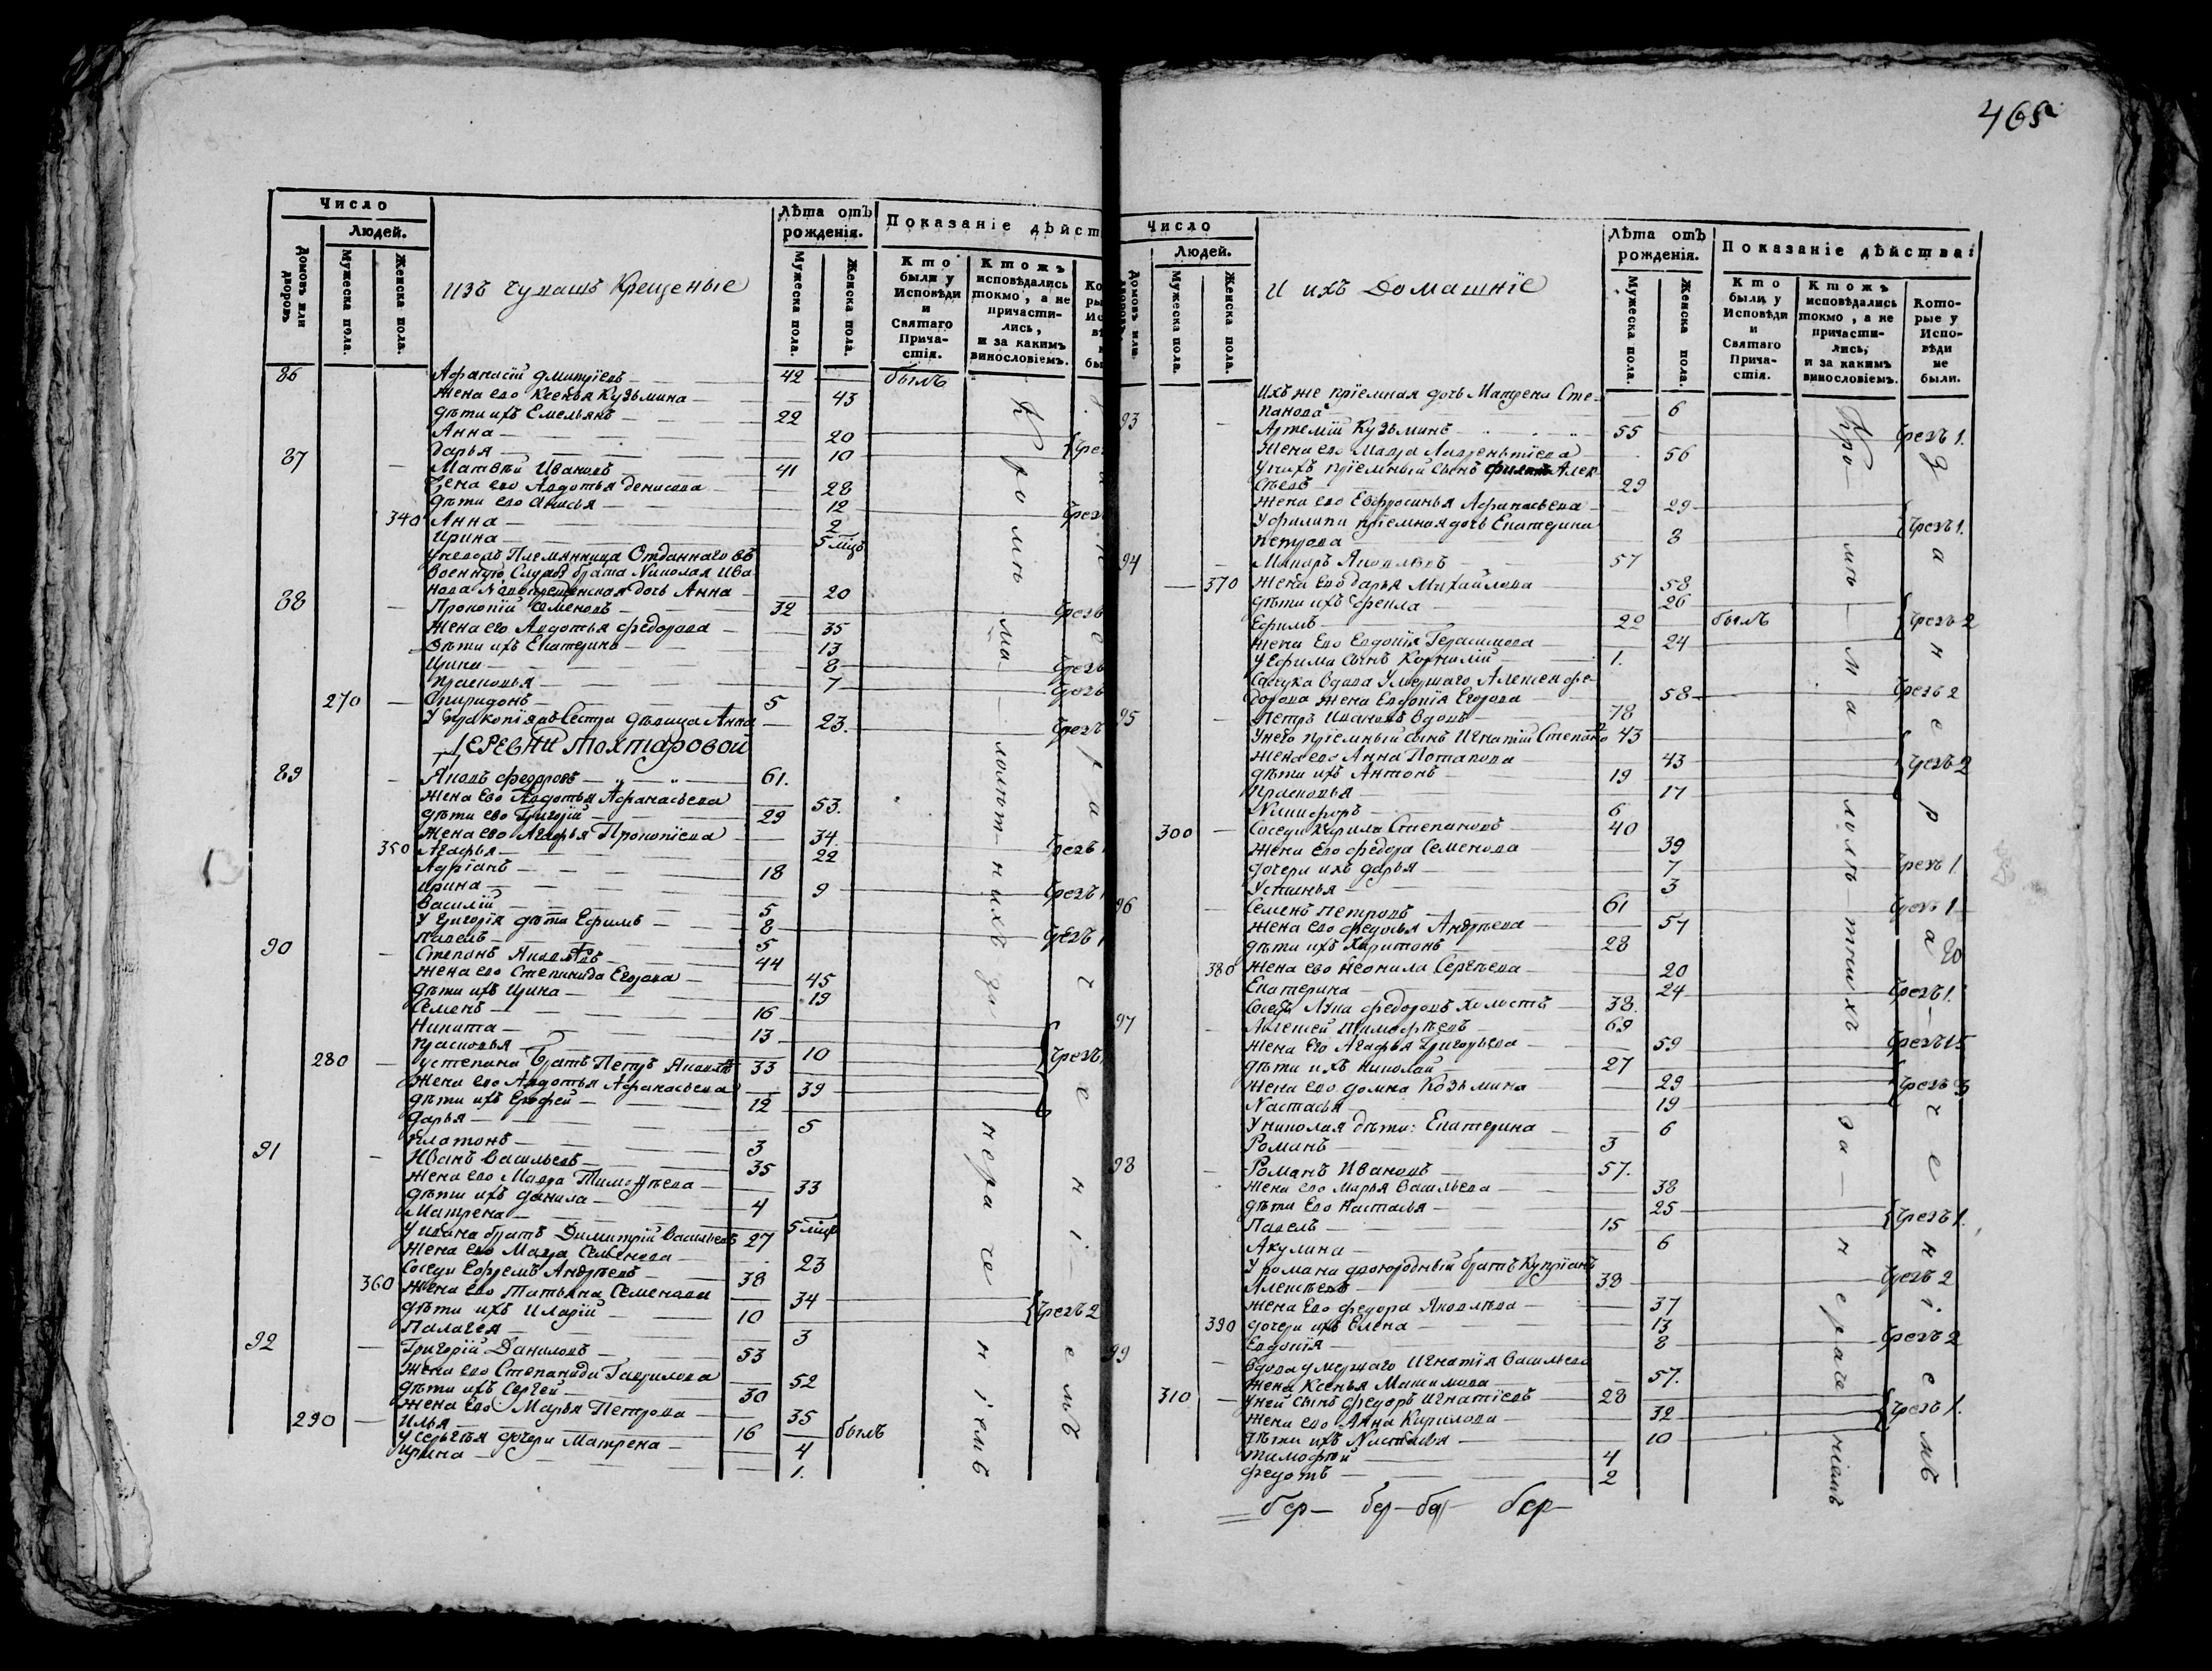 465
Число
Людей.
Домовъ или дворовъ
Мужеска пола.
Женска пола.
изъ чувашъ Крещеные
Лѣта отъ рожденія.
Мужеска пола.
Женска пола.
Показаніе дѣйст
Кто были у Исповѣди и Святаго Прича-стія.
Ктожъ исповѣдались токмо, а не причасти-лись, и за какимъ винословіемъ.
86 Афанасій Дмитріевъ 42 былъ
Жена его Ксенья Кузьмина 43
дѣти ихъ Емельянъ 22
Анна 20
Дарья 10
87 Матвѣй Ивановъ 41
Жена его Авдотья Денисова 28
дѣти его Анисья 12
340 Анна 2
Ирина 5 мцъ
у него Племянница Отданнаго въ
военную Службу брата Николая Ива
нова дочь Анна 20
88 Прокопій Семеновъ 32
Жена его Авдотья Федорова 35
дѣти ихъ Екатерина 13
Ирина 8
Прасковья 7
270 Спиридонъ 5
У Прокопія Сестра дѣвица Анна 23.
Деревни Тохтаровой
89 Яковъ Федоровъ 61.
Жена Его Авдотья Афанасьева 53.
дѣти его Григорій 29
Жена его Агафья Прокопіева 34.
350 Агафья 22
Адріанъ 18
Ирина 9
Василій 5
У Григорія дѣти Ефимъ 8
Павелъ 5
90 Степанъ Яковлевъ 44
Жена его Степанида Егорова 45
дѣти ихъ Ирина 19
Семенъ 16
Никита 13
Прасковья 10
280 у степана Братъ Петръ Яковлевъ 33
Жена его Авдотья Афанасьева 39
дѣти ихъ Ерофей 12
Дарья 5
Платонъ 3
91 Иванъ Васильевъ 35
Жена его Мавра Тимофѣева 33
дѣти ихъ Данила 4
Матрена 5 мцъ
У ивана братъ Димитрій Васильевъ 27
Жена его Мавра Семенова 23
Соседи Ефремъ Андрѣевъ 38
360 Жена его Татьяна Семенова 34
дѣти ихъ Иларій 10
Палагея 3
92 Григорій Даниловъ 53
Жена его Степанида Гаврилова 52
дѣти ихъ Сергей 30
Жена Его Марья Петрова 35
290 Илья 16 былъ
У сергѣя дочери Матрена 4
Ирина 1.
Кромѣ малолѣтнихъ за нераченіемъ
Число
Людей.
Домовъ или дворовъ
Мужеска пола.
Женска пола.
и ихъ Домашніе
Лѣта отъ рожденія.
Мужеска пола.
Женска пола.
Показаніе дѣйства:
Кто были у Исповѣди и Святаго Прича-стія.
Ктожъ исповѣдались токмо, а не причасти-лись, и за какимъ винословіемъ.
Кото-рые у Испо-вѣди не были.
Ихъ же пріемная дочь Матрена Сте-
панова 6
93 Артемій Кузьминъ 55 Чрезъ 1.
Жена его Мавра Лаврентьева 56
У нихъ пріемный сынъ Филипъ Алек
сѣевъ 29
Жена его Евфросинья Афанасьева 29
У филипа пріемная дочь Екатерина Чрезъ 1.
Петрова 8
94 Макаръ Яковлевъ 57
370 Жена его Дарья Михайлова 58
дѣти ихъ Фекла 26
Ефимъ 22 былъ Чрезъ 2
Жена Его Евдокія Герасимова 24
У Ефима сынъ Корнилій 1.
Соседка Вдова Умершаго Алексея Фе
дорова Жена Евдокія Егорова 58 Чрезъ 2
95 Петръ Ивановъ вдовъ 78
У него пріемный сынъ Игнатій Степановъ 43
Жена его Анна Потапова 43 Чрезъ 2
дѣти ихъ Антонъ 19
Прасковья 17
Никифоръ 6
300 Соседи Кирила Степановъ 40
Жена Его Федора Семенова 39
дочери ихъ Дарья 7 Чрезъ 1
Устинья 3
96 Семенъ Петровъ 61 Чрезъ 1
Жена его Федосья Андрѣева 57
дѣти ихъ Харитонъ 28
380 Жена его Неонила Сергѣева 20
Екатерина 24 Чрезъ 1.
Соседъ Лука Федоровъ Холостъ 38.
97 Алексей Тимофѣевъ 69
Жена Его Агафья Григорьева 59 Чрезъ 15
дѣти ихъ Николай 27
Жена его Домна Козьмина 29 Чрезъ 3
Настасья 19
У николая дѣти: Екатерина 6
Романъ 3
98 Романъ Ивановъ 57.
Жена его Марья Васильева 38
дѣти Его Настасья 25
Павелъ 15 Чрезъ 1.
Акулина 6
У романа двоюродный братъ Купріанъ
Алексѣевъ 38 Чрезъ 2
Жена Его Федора Яковлева 37
390 дочери ихъ Елена 13
Евдокія 8 Чрезъ 2
99 Вдова умершаго Игнатія Васильева
жена Ксенья Максимова 57.
310 У ней сынъ Федоръ Игнатіевъ 28
Жена его Анна Кирилова 32 Чрезъ 1.
дѣти ихъ Настасья 10
Тимофей 4
Федотъ 2
Кромѣ малолѣтнихъ за нераченіемъ